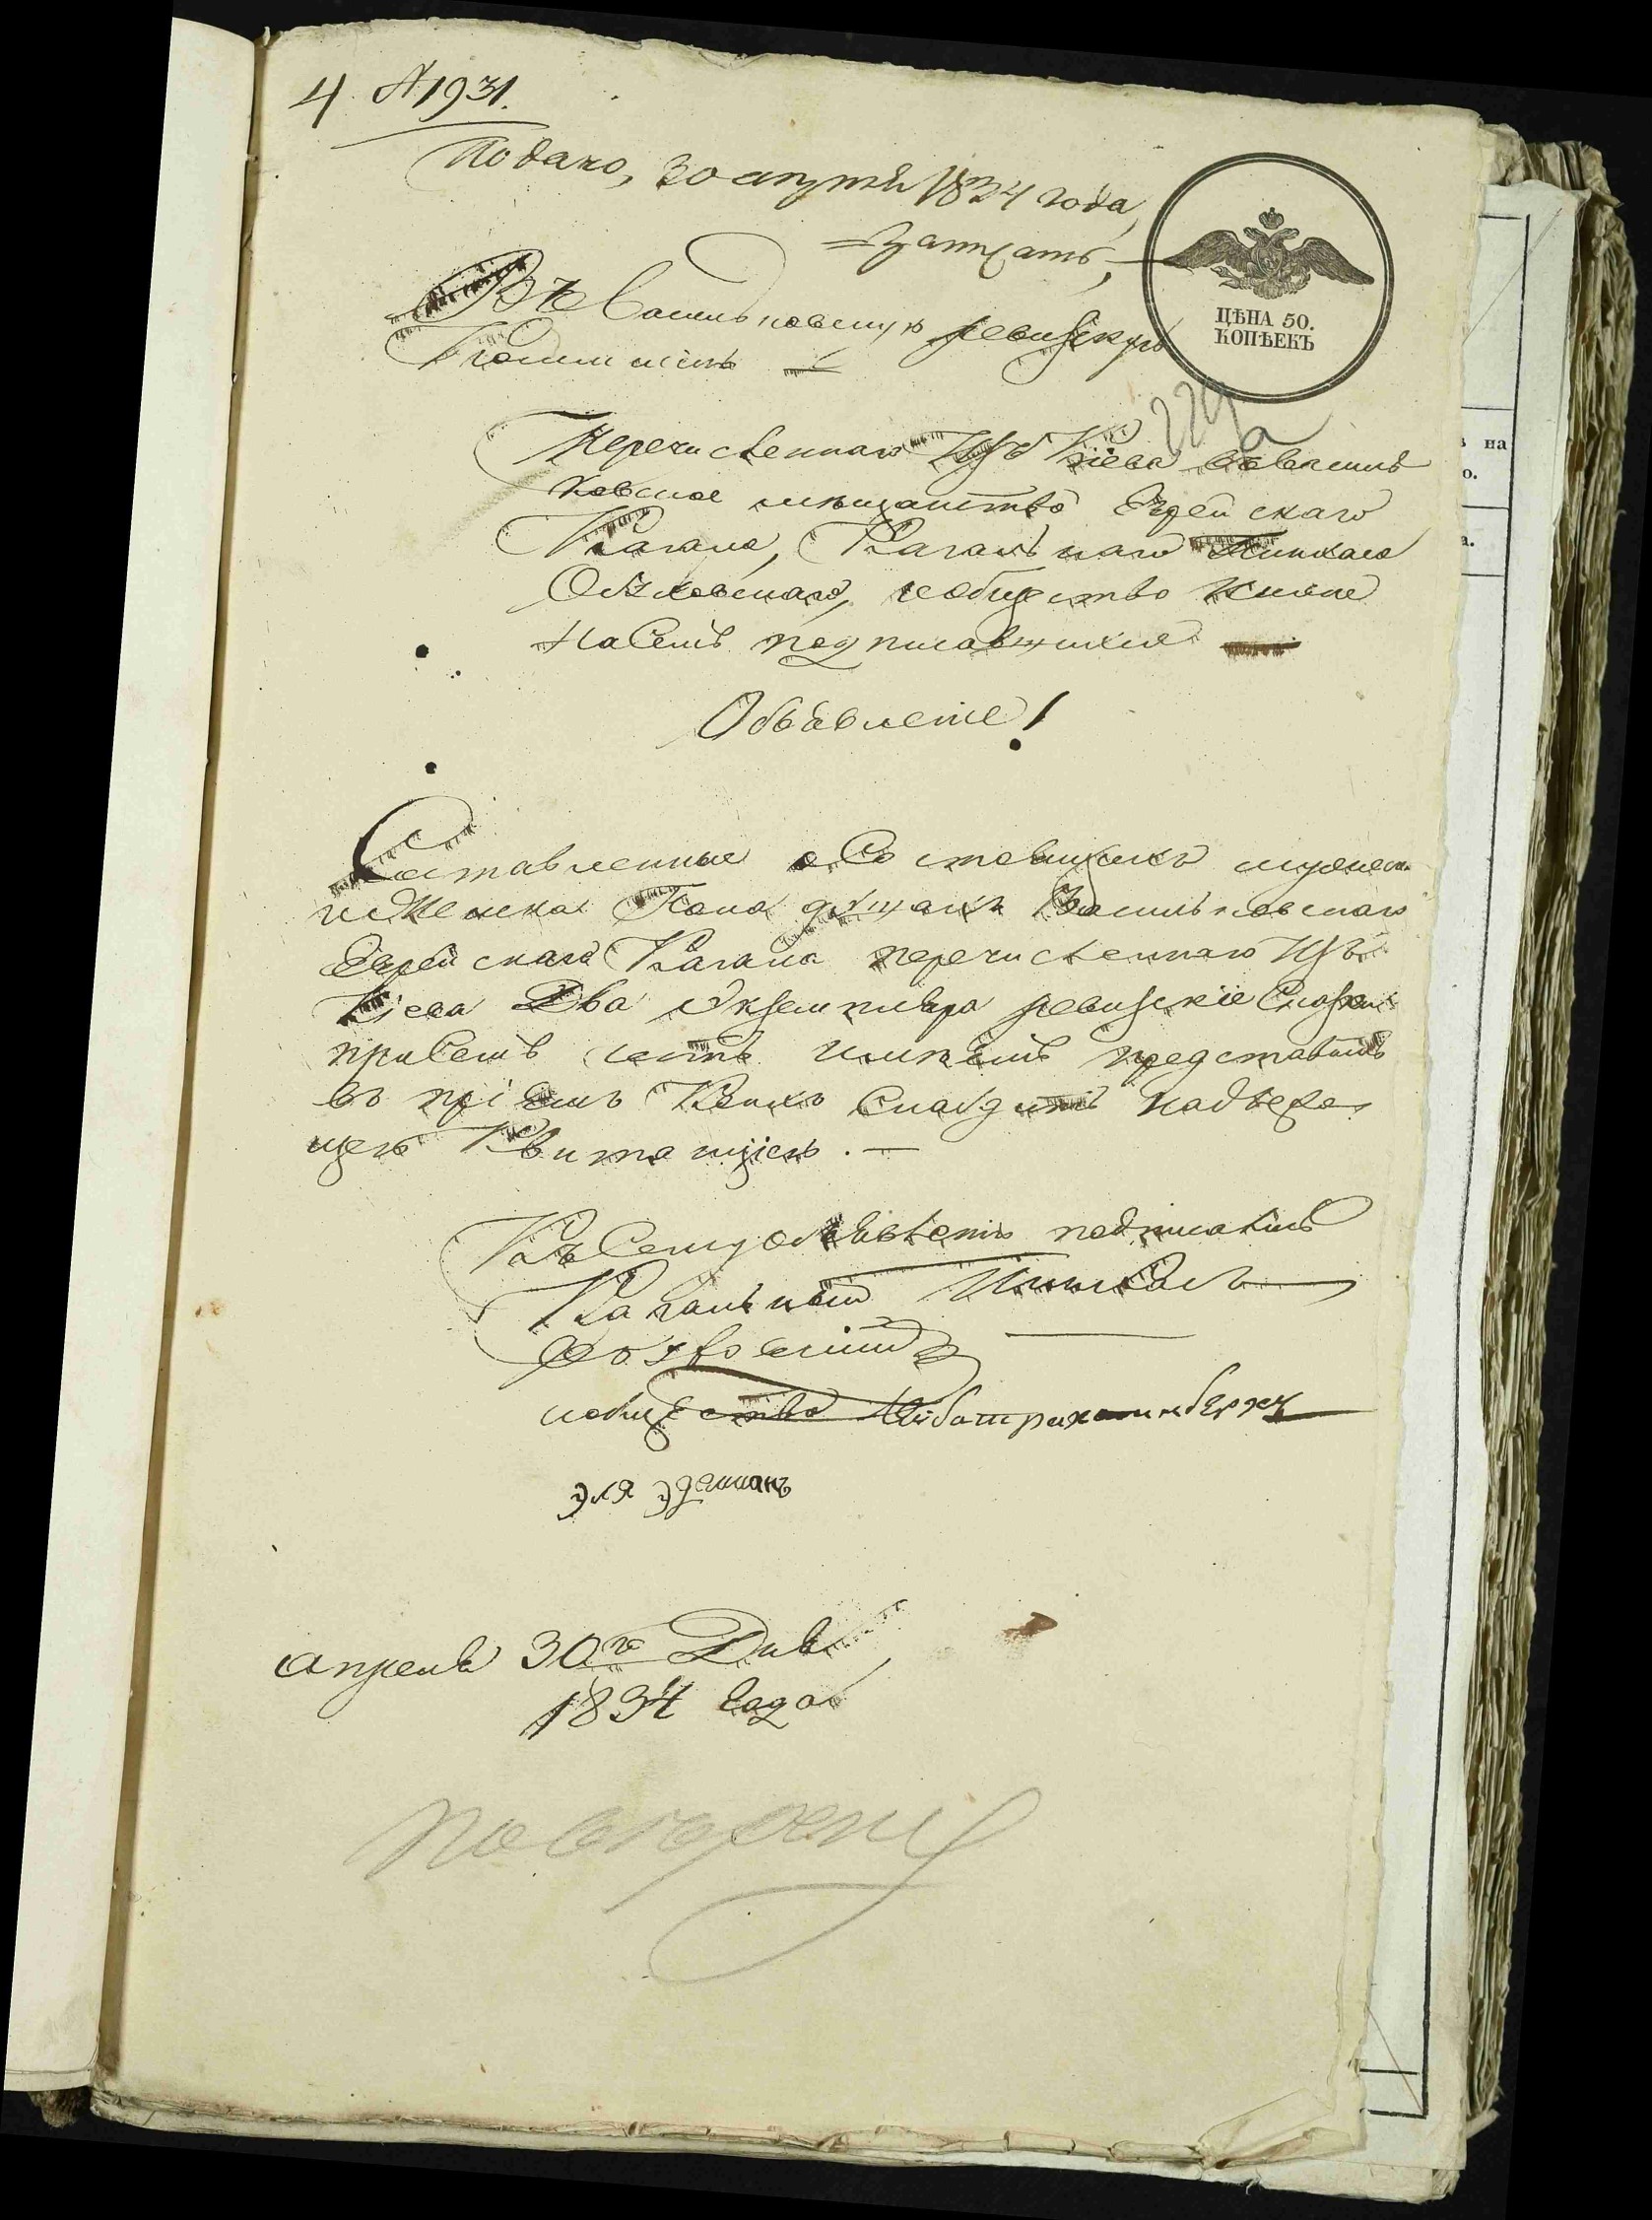 4. №1931.
Подано, 30 апреля 1834 года
ЦѢНА 50.
КОПѢЕКЪ
Въ Васильковскую ревизскую
Коммисію
Перечисленнаго Изъ Кіева въ Василь
ковское мещанство Еврейскаго
Кагала, Кагальнаго
общество
На Семъ подписавшихся
Объявленіе!
Составленные о Состоящихъ мужеска
и Женска Пола душахъ Васильковскаго
Еврейскаго Кагала перечисленнаго Изъ
Кіева Два Экземпляра ревизскіе Сказки
при Семъ честь имѣемъ представить
въ пріемъ Коихъ Снабдить надлежа
щею Квитанціею. —
Къ Сему объявленію подписались
Кагальный
эля
апреля 30го Дня
1834 года
на
о.
а.